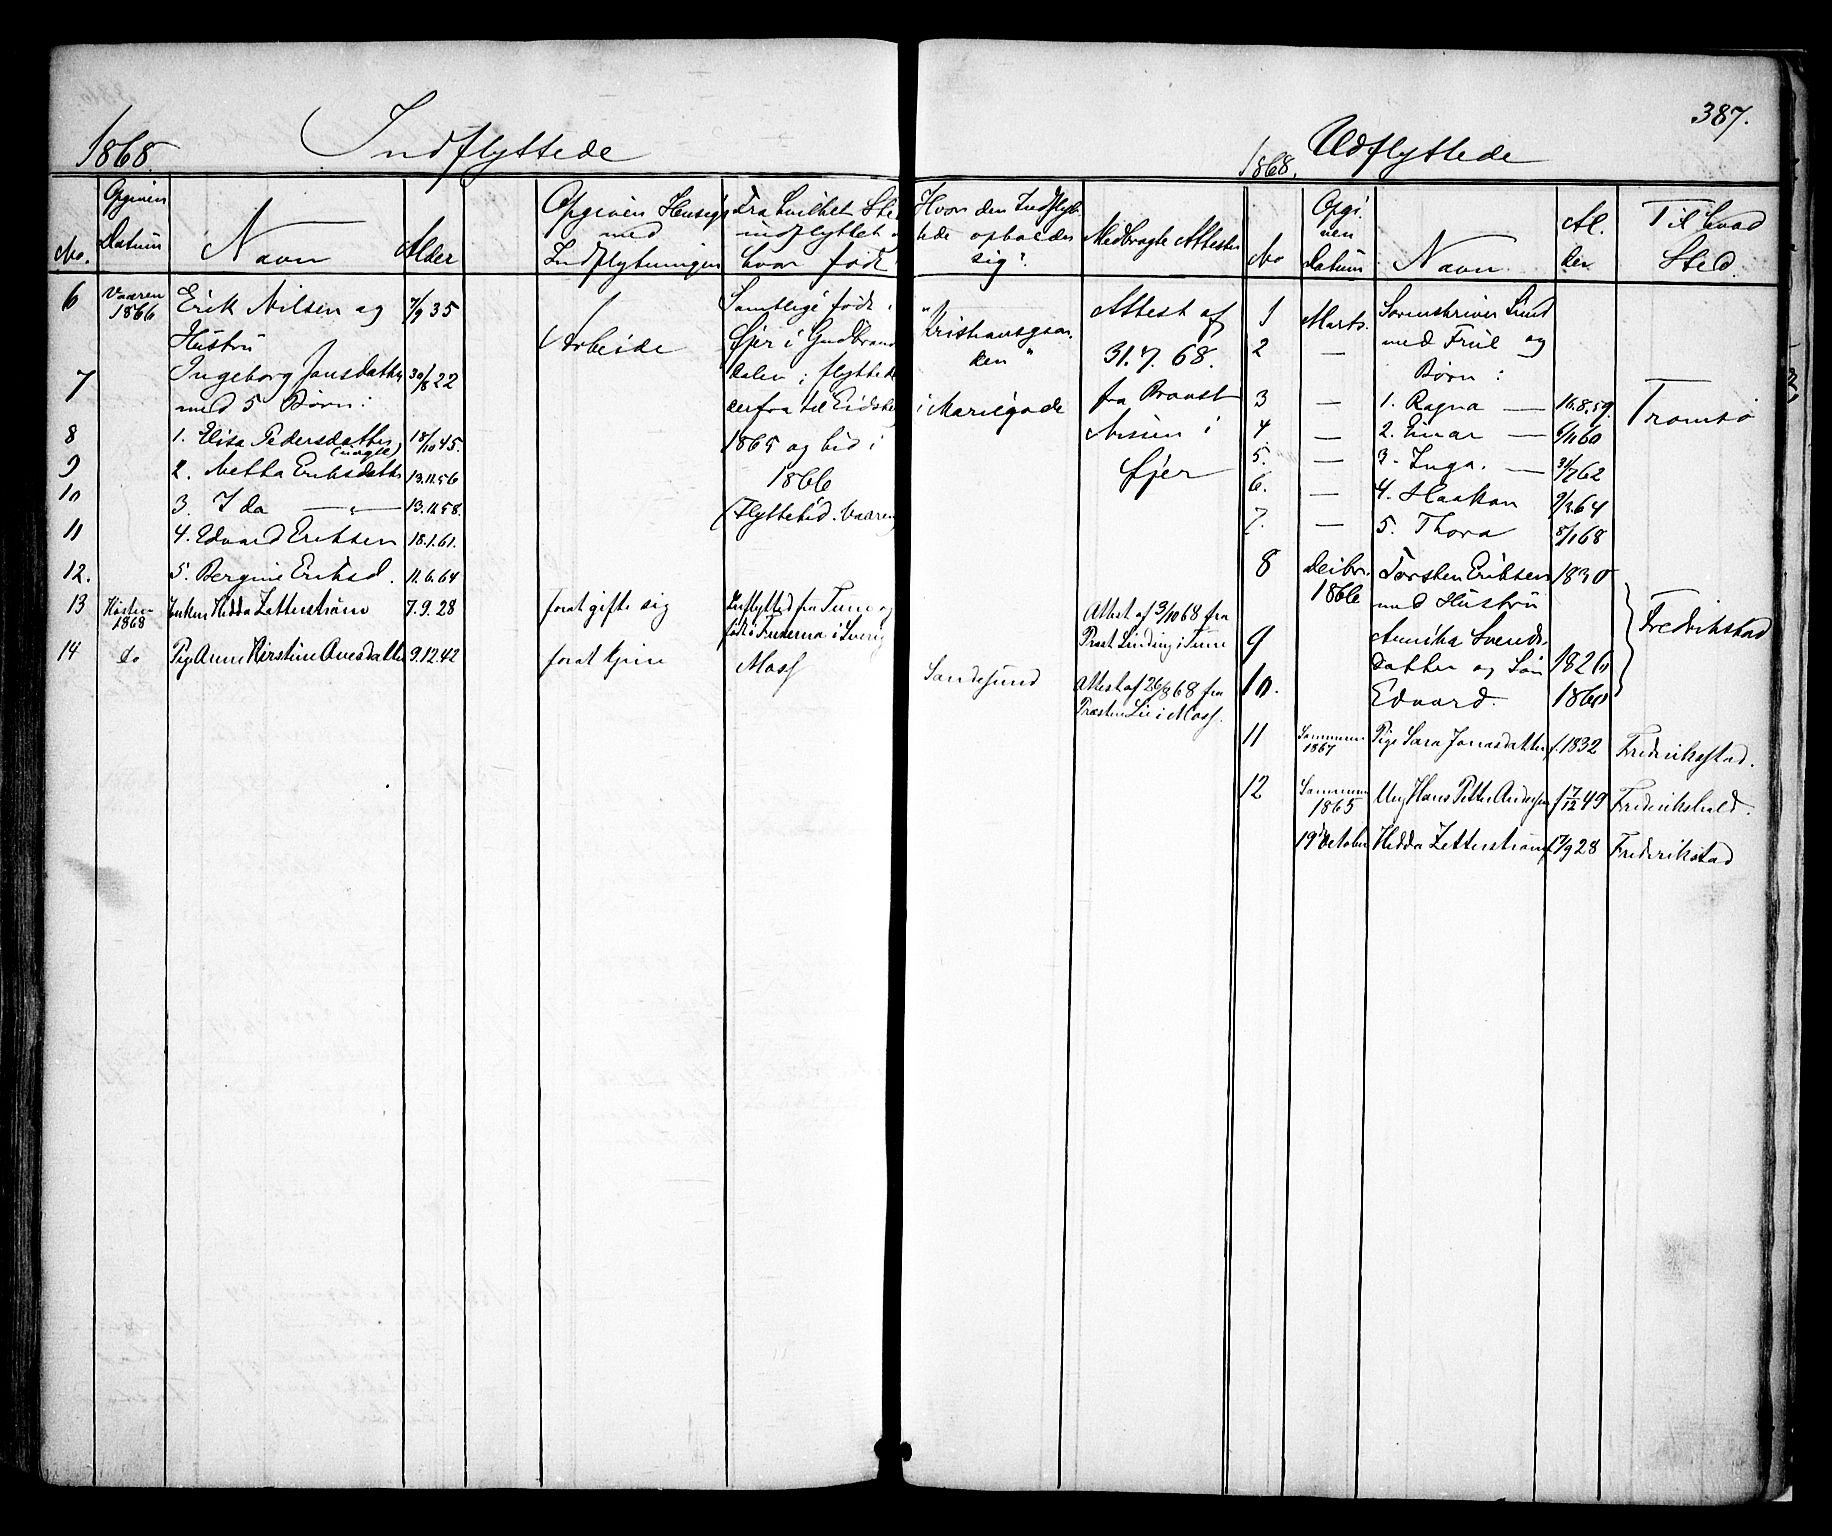 387.
1868. Indflyttede
No. Opgiven Datum Navn Alder Opgiven Hensigt med Indflytningen Fra hvilket Sted indflyttet hvor født Hvor den Indflyttede opholder sig. Medbragte Attester
6 Vaaren 1866 Erik Nilsen og 7/9 35 Arbeide Samtlige født i "Kristiansgaarden" Attest af
Hustru Øjer i Gudbrands 31.7.68.
7 Ingeborg Jonsdatter 30/8 22 dalen; flyttede i Mariegade fra Provst
med 5 Børn: derfra til Eidsb
8 1. Elisa Pedersdatter (uægte) 18/10 45. 1865 og hid i Nissen i
9 2. Netha Eriksdatter 13.11.56 1866 Øjer
10 3. Ida — " — 13.11.58. (Flyttetid. Vaaren
11 4. Edvard Eriksen 18.1.61.
12. 5. Bergine Eriksd. 11.6.64
13 Høsten 1868 Enken Hedda Zetterstrøm 7.9.28 forat gifte sig Indflytted fra Tune og født i i Sverig Attest af 3/10 68 fra Præst Linding i Tune
14 do Pige Anne Kirstine Anesdatter 9.12.42 forat tjene Moss Sandesund Attest af 26/8 68 fra Præsten Lie i Moss.
1868. Udflyttede
No Opgiven Datum Navn Alder Til hvad Sted.
1 Marts. Sorenskriver Lund
2 — med Frue og
Børn:
3 — 1. Ragna — 16.8.59. Tromsø
4 — 2. Einar — 6/11 60
5. — 3. Inga. — 31/7 62
6. — 4. Haakon 9/3 64
7. — 5. Thora 5/1 68
8 Decbr. 1866 Torsten Eriksen 1830 Fredrikstad
med Hustru
9 Annika Svends
datter og Søn 1826
10. Edvard. 1860
11 Sommeren 1867 Pige Sara Jonasdatter f. 1832 Frederiksstad.
12 Sommeren 1865 Ung Hans Petter Andersen f 17/12 49 Frederikshald.
19 October Hedda Zetterstrøm f 7/9 28 Frederikstad